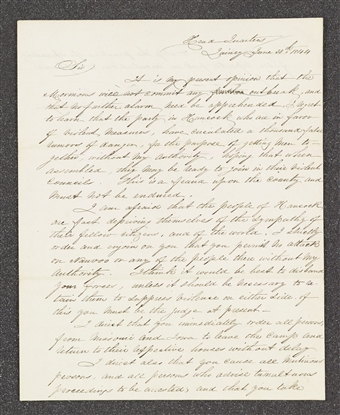 Head Quarters
Quincy June 30th, 1844
Sir
It is my present opinion that the
Mormons will not commit any further outbreak, and
that no further alarm need be apprehended. I regret
to learn that the party in Hancock who are in favor
of violent measures, have circulated a thousand false
rumors of danger, for the purpose of getting men to-
gether without my authority, hoping that when
assembled, they may be ready to join in their violent
Councils. This is a fraud upon the County and
must not be endured.
I am afraid that the people of Hancock
are fast depriving themselves of the sympathy of
their fellow citizens, and of the world. I strictly
order and enjoin on you that you permit no attack
on Nauvoo or any of the people there without my
authority. I think it would be best to disband
your forces, unless it should be necessary to re-
tain them to suppress violence on either side. of
this you must be the judge at present.
I direct that you immediately order all
from Missouri and Iowa to leave the camp and
return to their respective homes without delay.
I direct also that you cause all mutinous
persons, and all persons who advise tumultuous
proceedings to be arrested; and that you take